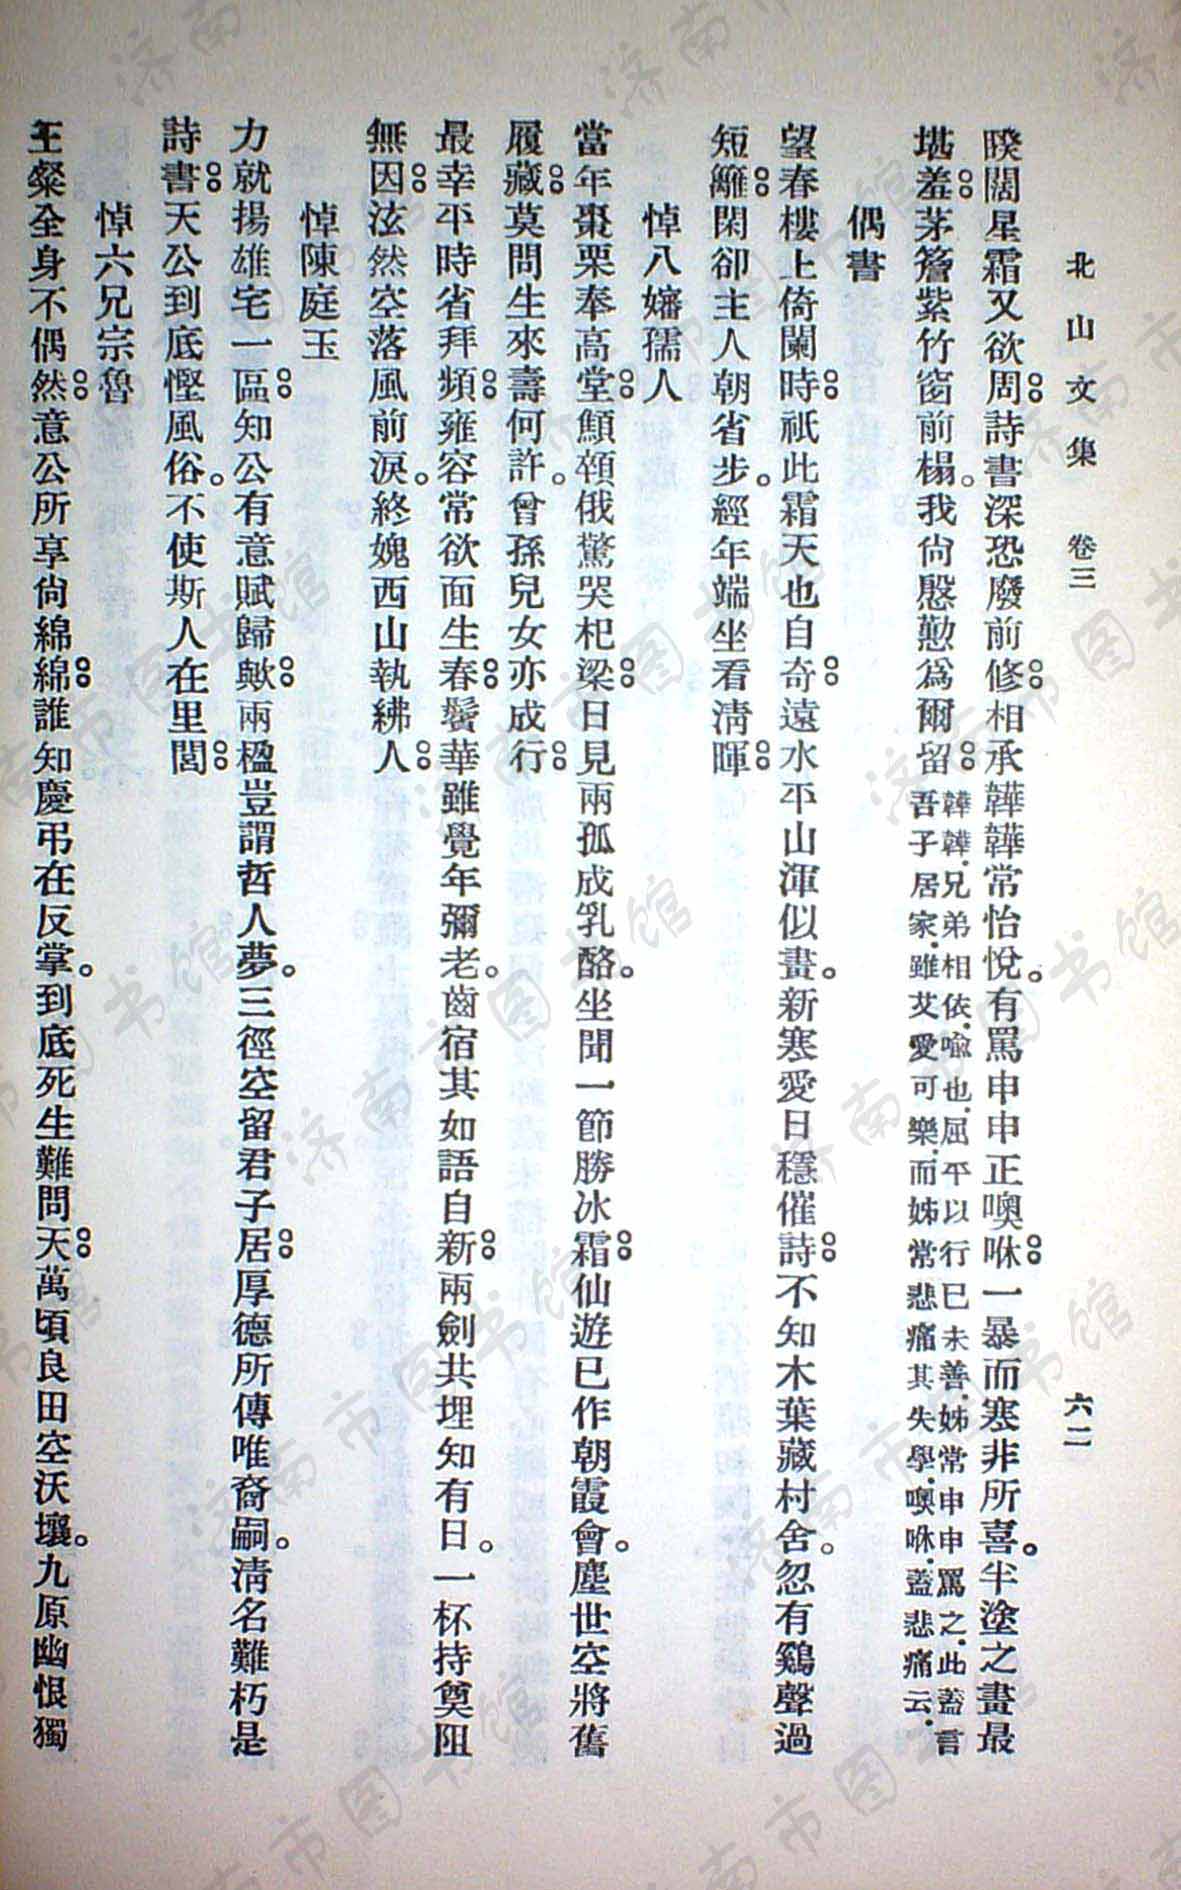 北山文集　卷三　六二
睽闊星霜又欲周。詩書深恐廢前修。相承韡韡常怡悅。有罵申申正噢咻。一暴而寒非所喜。半塗之畫最
堪羞。茅簷紫竹窗前榻。我尙慇懃爲爾留。韡韡.兄弟相依.喩也.屈平以行已未善姊常申申罵之.此蓋言
吾子居家.雖艾愛可樂.而姊常悲痛其失學.噢咻.蓋悲痛云.
偶書
望春樓上倚闌時。祇此霜天也自奇。遠水平山渾似畫。新寒愛日穩催詩。不知木葉藏村舍。忽有鷄聲過
短籬。閑卻主人朝省步。經年端坐看淸暉。
悼八嬸孺人
當年棗栗奉高堂。顦顇俄驚哭杞梁。日見兩孤成乳酪。坐聞一節勝冰霜。仙遊已作朝霞會。塵世空將舊
履藏。莫問生來壽何許。曾孫兒女亦成行。
最幸平時省拜頻。雍容常欲面生春。鬢華雖覺年彌老。齒宿其如語自新。兩劍共埋知有日。一杯持奠阻
無因。泫然空落風前淚。終媿西山執紼人。
悼陳庭玉
力就揚雄宅一區。知公有意賦歸歟。兩楹豈謂哲人夢。三徑空留君子居。厚德所傳唯裔嗣。淸名難朽是
詩書。天公到底慳風俗。不使斯人在里閭。
悼六兄宗魯
王粲全身不偶然。意公所享尙綿綿。誰知慶弔在反掌。到底死生難問天。萬頃良田空沃壤。九原幽恨獨